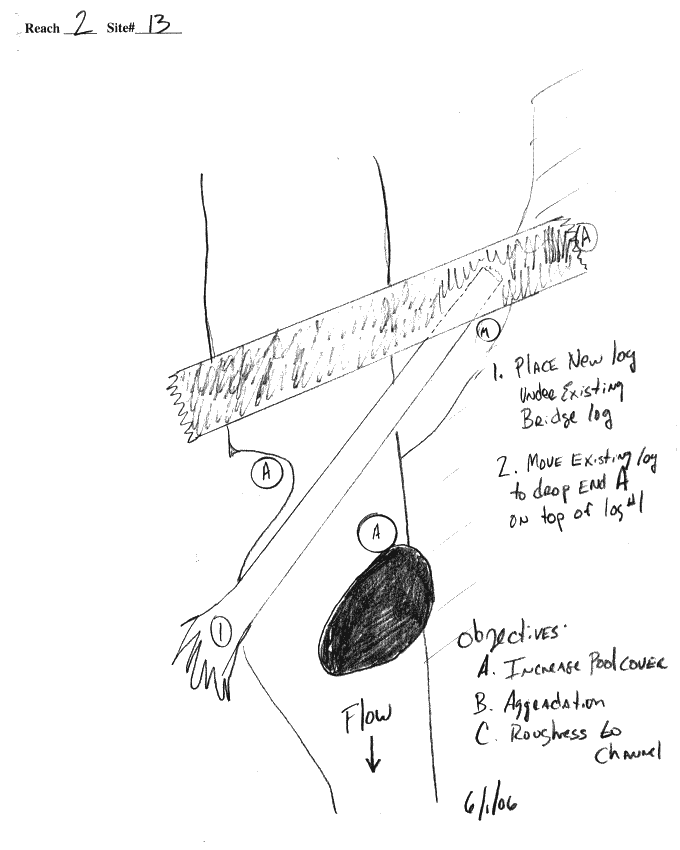 Reach 2 Site# 13
A
M
1. Place New log
Under Existing
Bridge log
A
2. Move Existing log
to drop End A
on top of log #1
A
1
Objectives:
A. Increase Pool cover
B. Aggradation
C. Roughness to
Channel
Flow
6/1/06